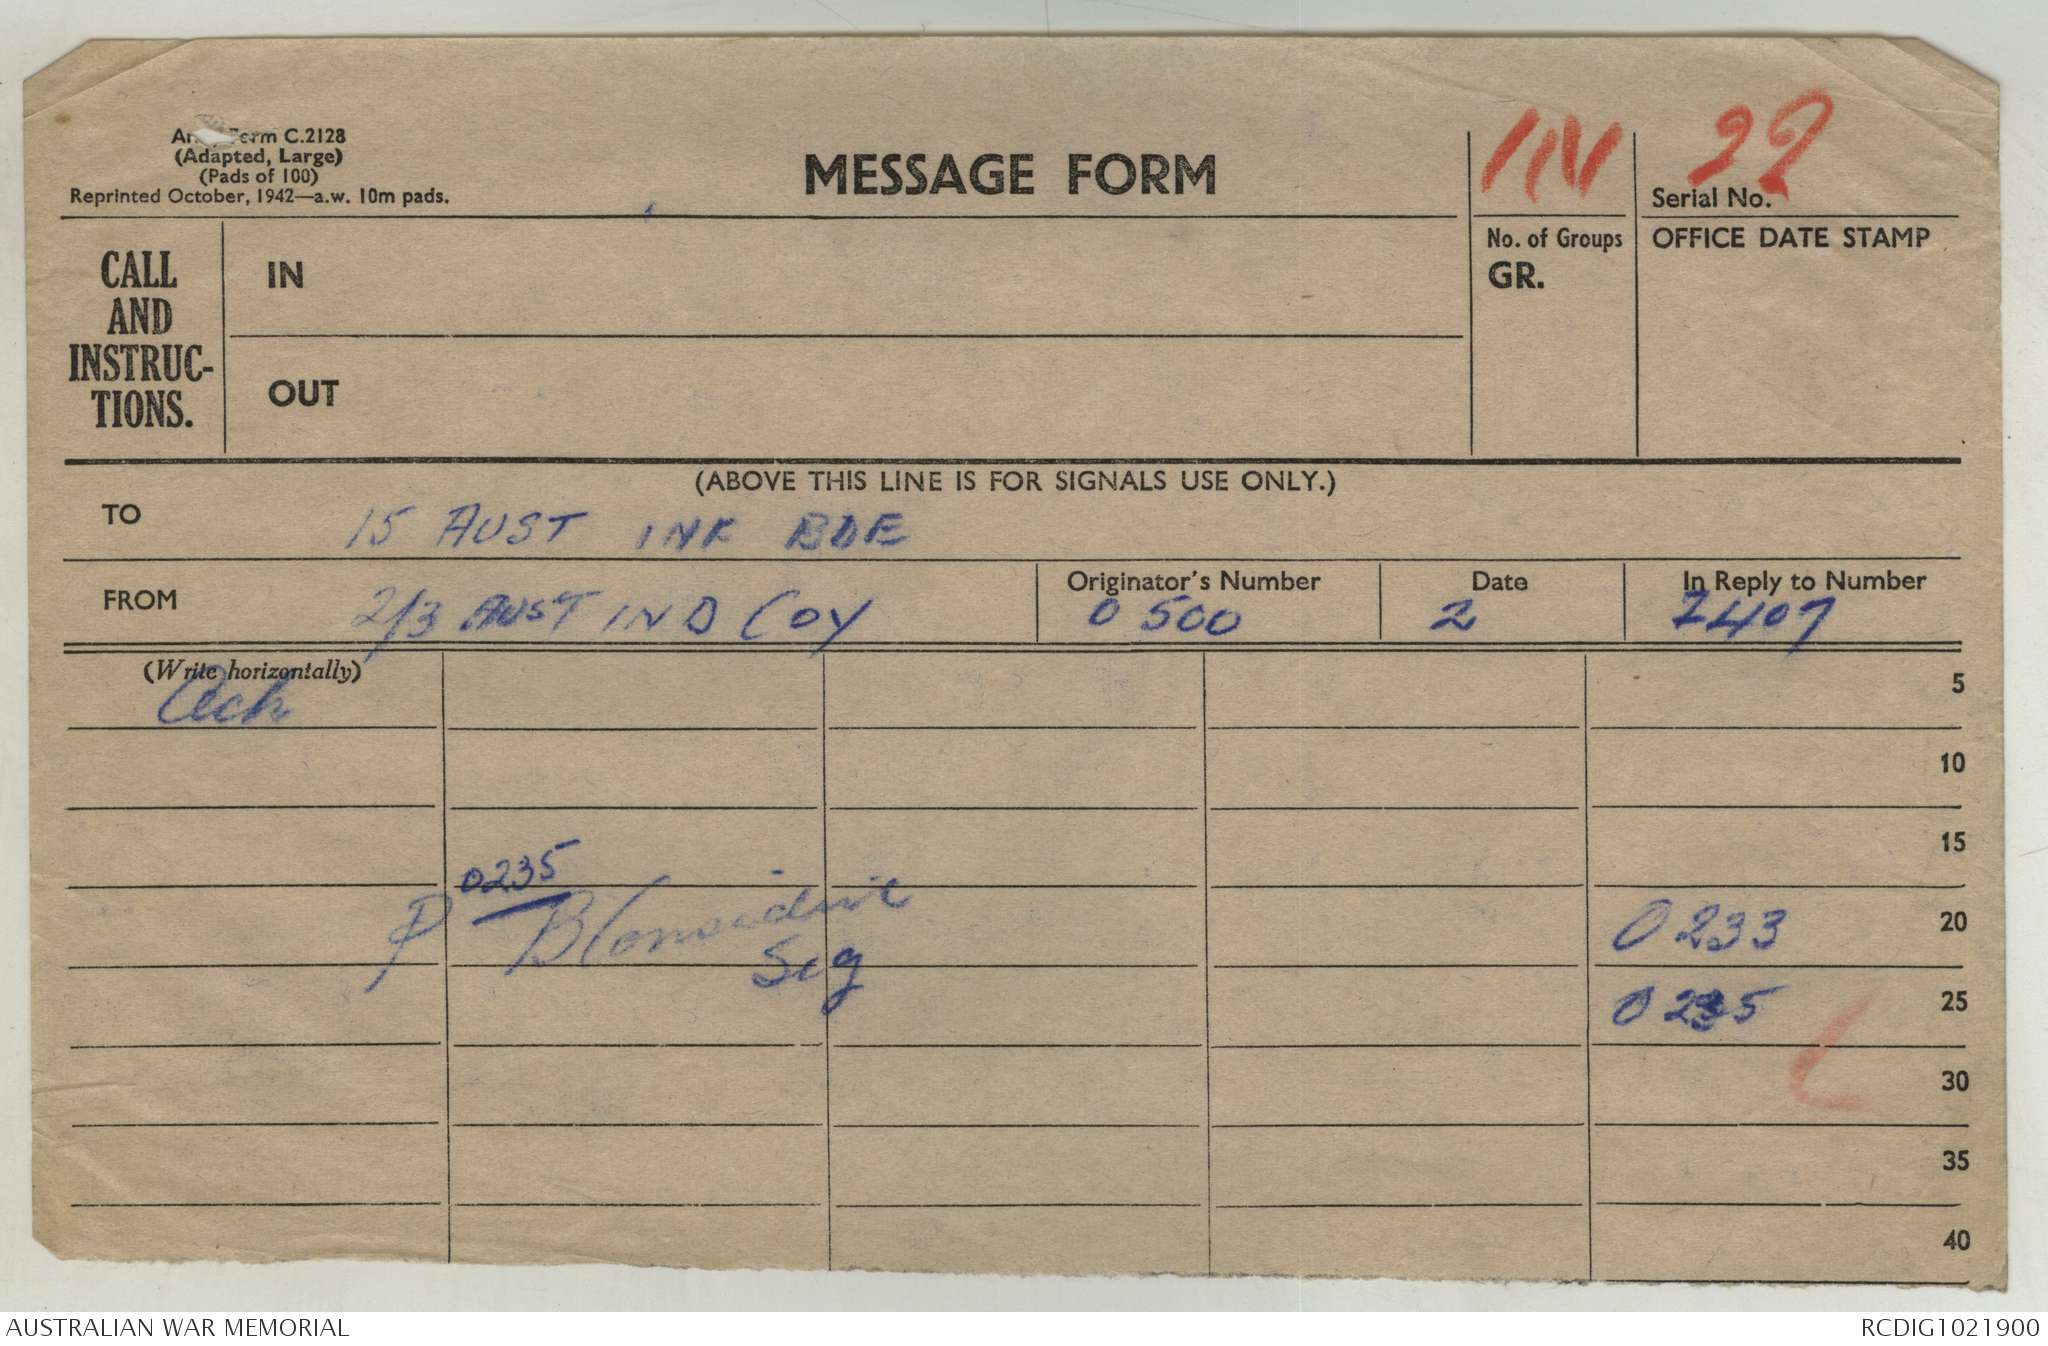 Army Form C.2128
(Adapted, Large)
(Pads of 100)
Reprinted October, 1942—a.w. 10m pads.
MESSAGE FORM
IN
Serial No. 22
CALL AND INSTRUC-TIONS.
IN
OUT
No. of Groups
GR.
OFFICE DATE STAMP
(ABOVE THIS LINE IS FOR SIGNALS USE ONLY.)
TO 15 AUST INF BDE
FROM 2/3 AUST IND COY
Originator's Number 0500
Date 2
In Reply to Number
(Write horizontally)
Ack
5
10
15
0235
0233 20
Sig
0235 25
30
35
40
AUSTRALIAN WAR MEMORIAL
RCDIG1021900